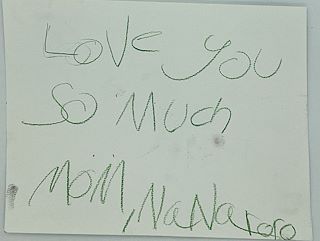 Love you
So Much
MOM, NaNaroro